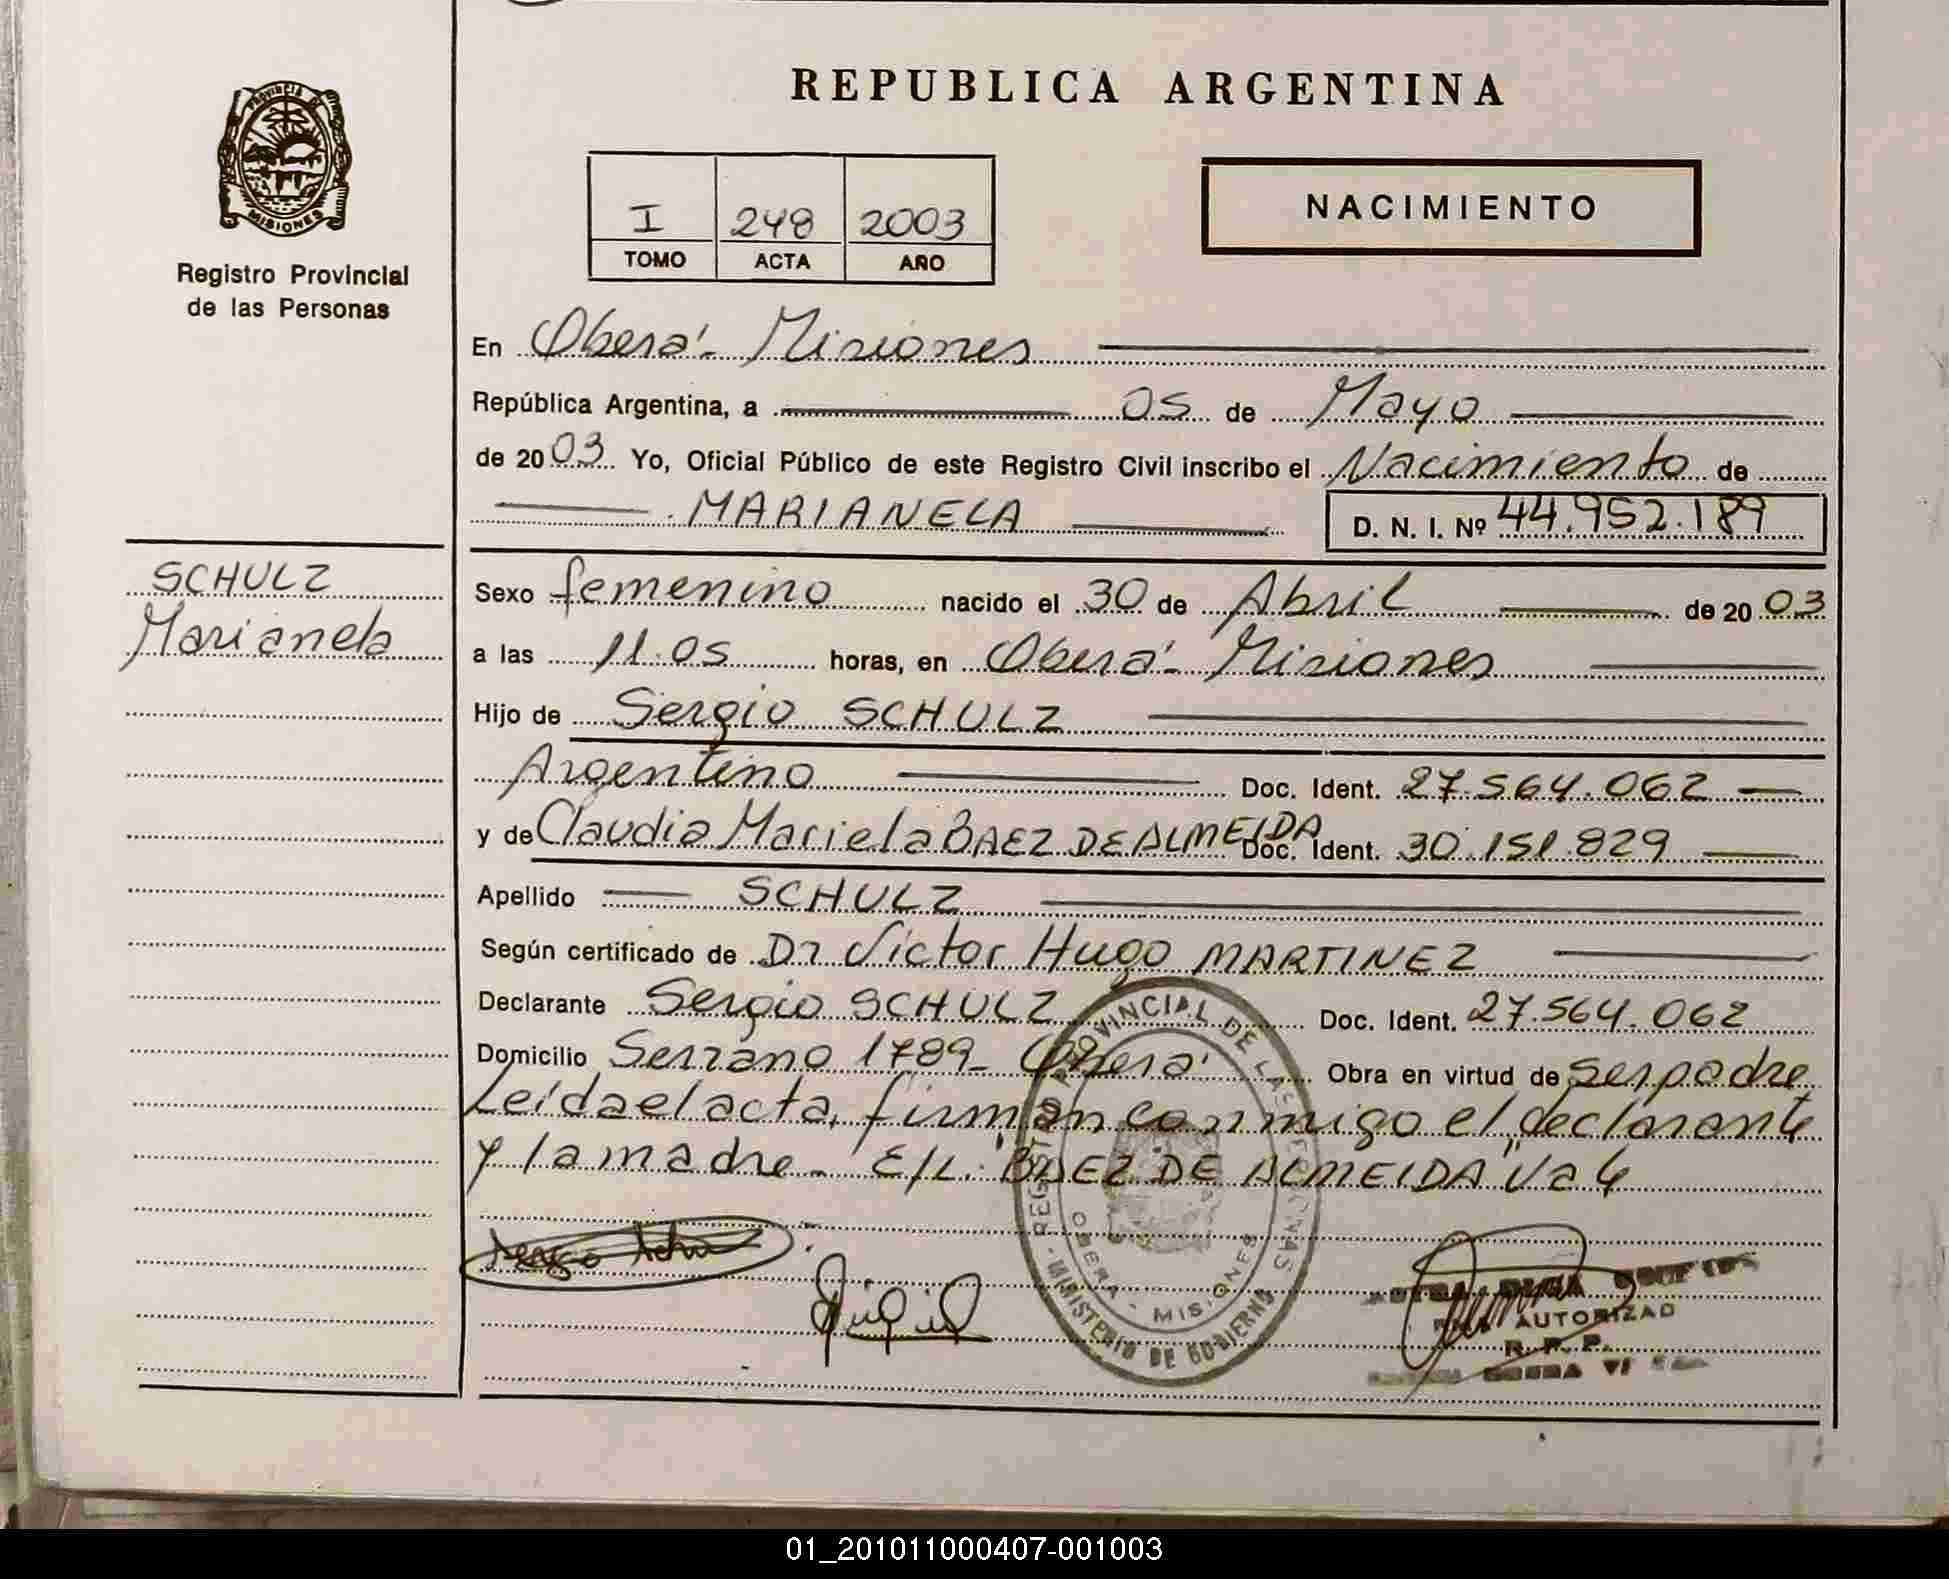 REPUBLICA ARGENTINA
PROVINCIA DE MISIONES
Registro Provincial
de las Personas
I 248 2003
TOMO ACTA AÑO
NACIMIENTO
En Oberá - Misiones
República Argentina, a 05 de Mayo
de 2003 Yo, Oficial Público de este Registro Civil inscribo el Nacimiento de
MARIANELA D. N. I. Nº 44.952.189
SCHULZ
Marianela
Sexo femenino nacido el 30 de Abril de 2003
a las 11.05 horas, en Oberá - Misiones
Hijo de Sergio SCHULZ
Argentino Doc. Ident. 27.564.062
y de Claudia Mariela BAEZ DE ALMEIDA Doc. Ident. 30.151.829
Apellido SCHULZ
Según certificado de Dr Victor Hugo MARTINEZ
Declarante Sergio SCHULZ Doc. Ident. 27.564.062
Domicilio Serrano 1789 - Oberá Obra en virtud de ser padre
Leída el acta, firman conmigo el declarante
y la madre - E/L: "BAEZ DE ALMEIDA" Vale
REGISTRO PROVINCIAL DE LAS PERSONAS
OBERA - MISIONES
MINISTERIO DE GOBIERNO
AUTORIZAD
R. P. P.
01_201011000407-001003